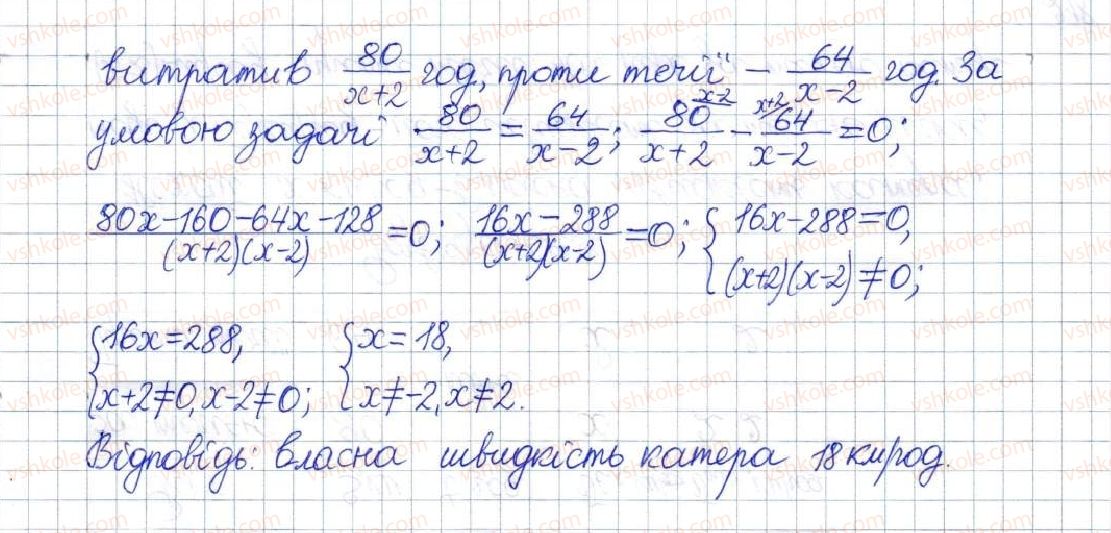 витратив 80/(x+2) год, проти течії – 64/(x-2) год. За
умовою задачі 80/(x+2) = 64/(x-2); 80/(x+2) ^(x-2) - 64/(x-2) ^(x+2) = 0;
(80x-160-64x-128)/((x+2)(x-2)) = 0; (16x-288)/((x+2)(x-2)) = 0; { 16x-288=0, (x+2)(x-2)≠0;
{ 16x=288, x+2≠0, x-2≠0; { x=18, x≠-2, x≠2.
Відповідь: власна швидкість катера 18 км/год.